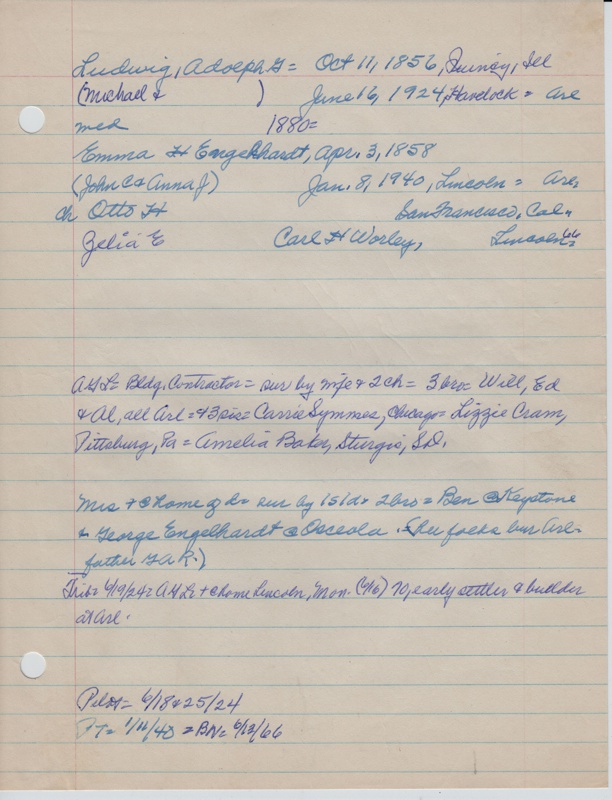 Ludwig, Adolph G = Oct 11, 1856, Quincy, Ill
(Michael & ) June 16, 1924, Havelock = Arl
med 1880=
Emma H Engelhardt, Apr. 3, 1858
(John C & Anna J) Jan. 8, 1940, Lincoln = Arl,
ch Otto H San Francisco, Cal.,
Zelia E Carl H Worley, Lincoln 66
AGL= Bldg. Contractor = sur by wife & 2 ch = 3 bro = Will, Ed
& Al, all Arl = & 3 sis = Carrie Symmes, Chicago = Lizzie Cram,
Pittsburg, Pa = Amelia Baker, Sturgis, S.D.
Mrs + @ home of d = sur by 1 s 1 d & 2 bro = Ben @ Keystone
& George Engelhardt @ Osceola. (her folks bur Arl-
father GAR.)
Trib = 6/19/24 = AGL + @ home Lincoln, Mon. (6/16) 70, early settler & builder
at Arl.
Pilot = 6/18 & 25/24
FT = 1/11/40 = BN = 6/13/66